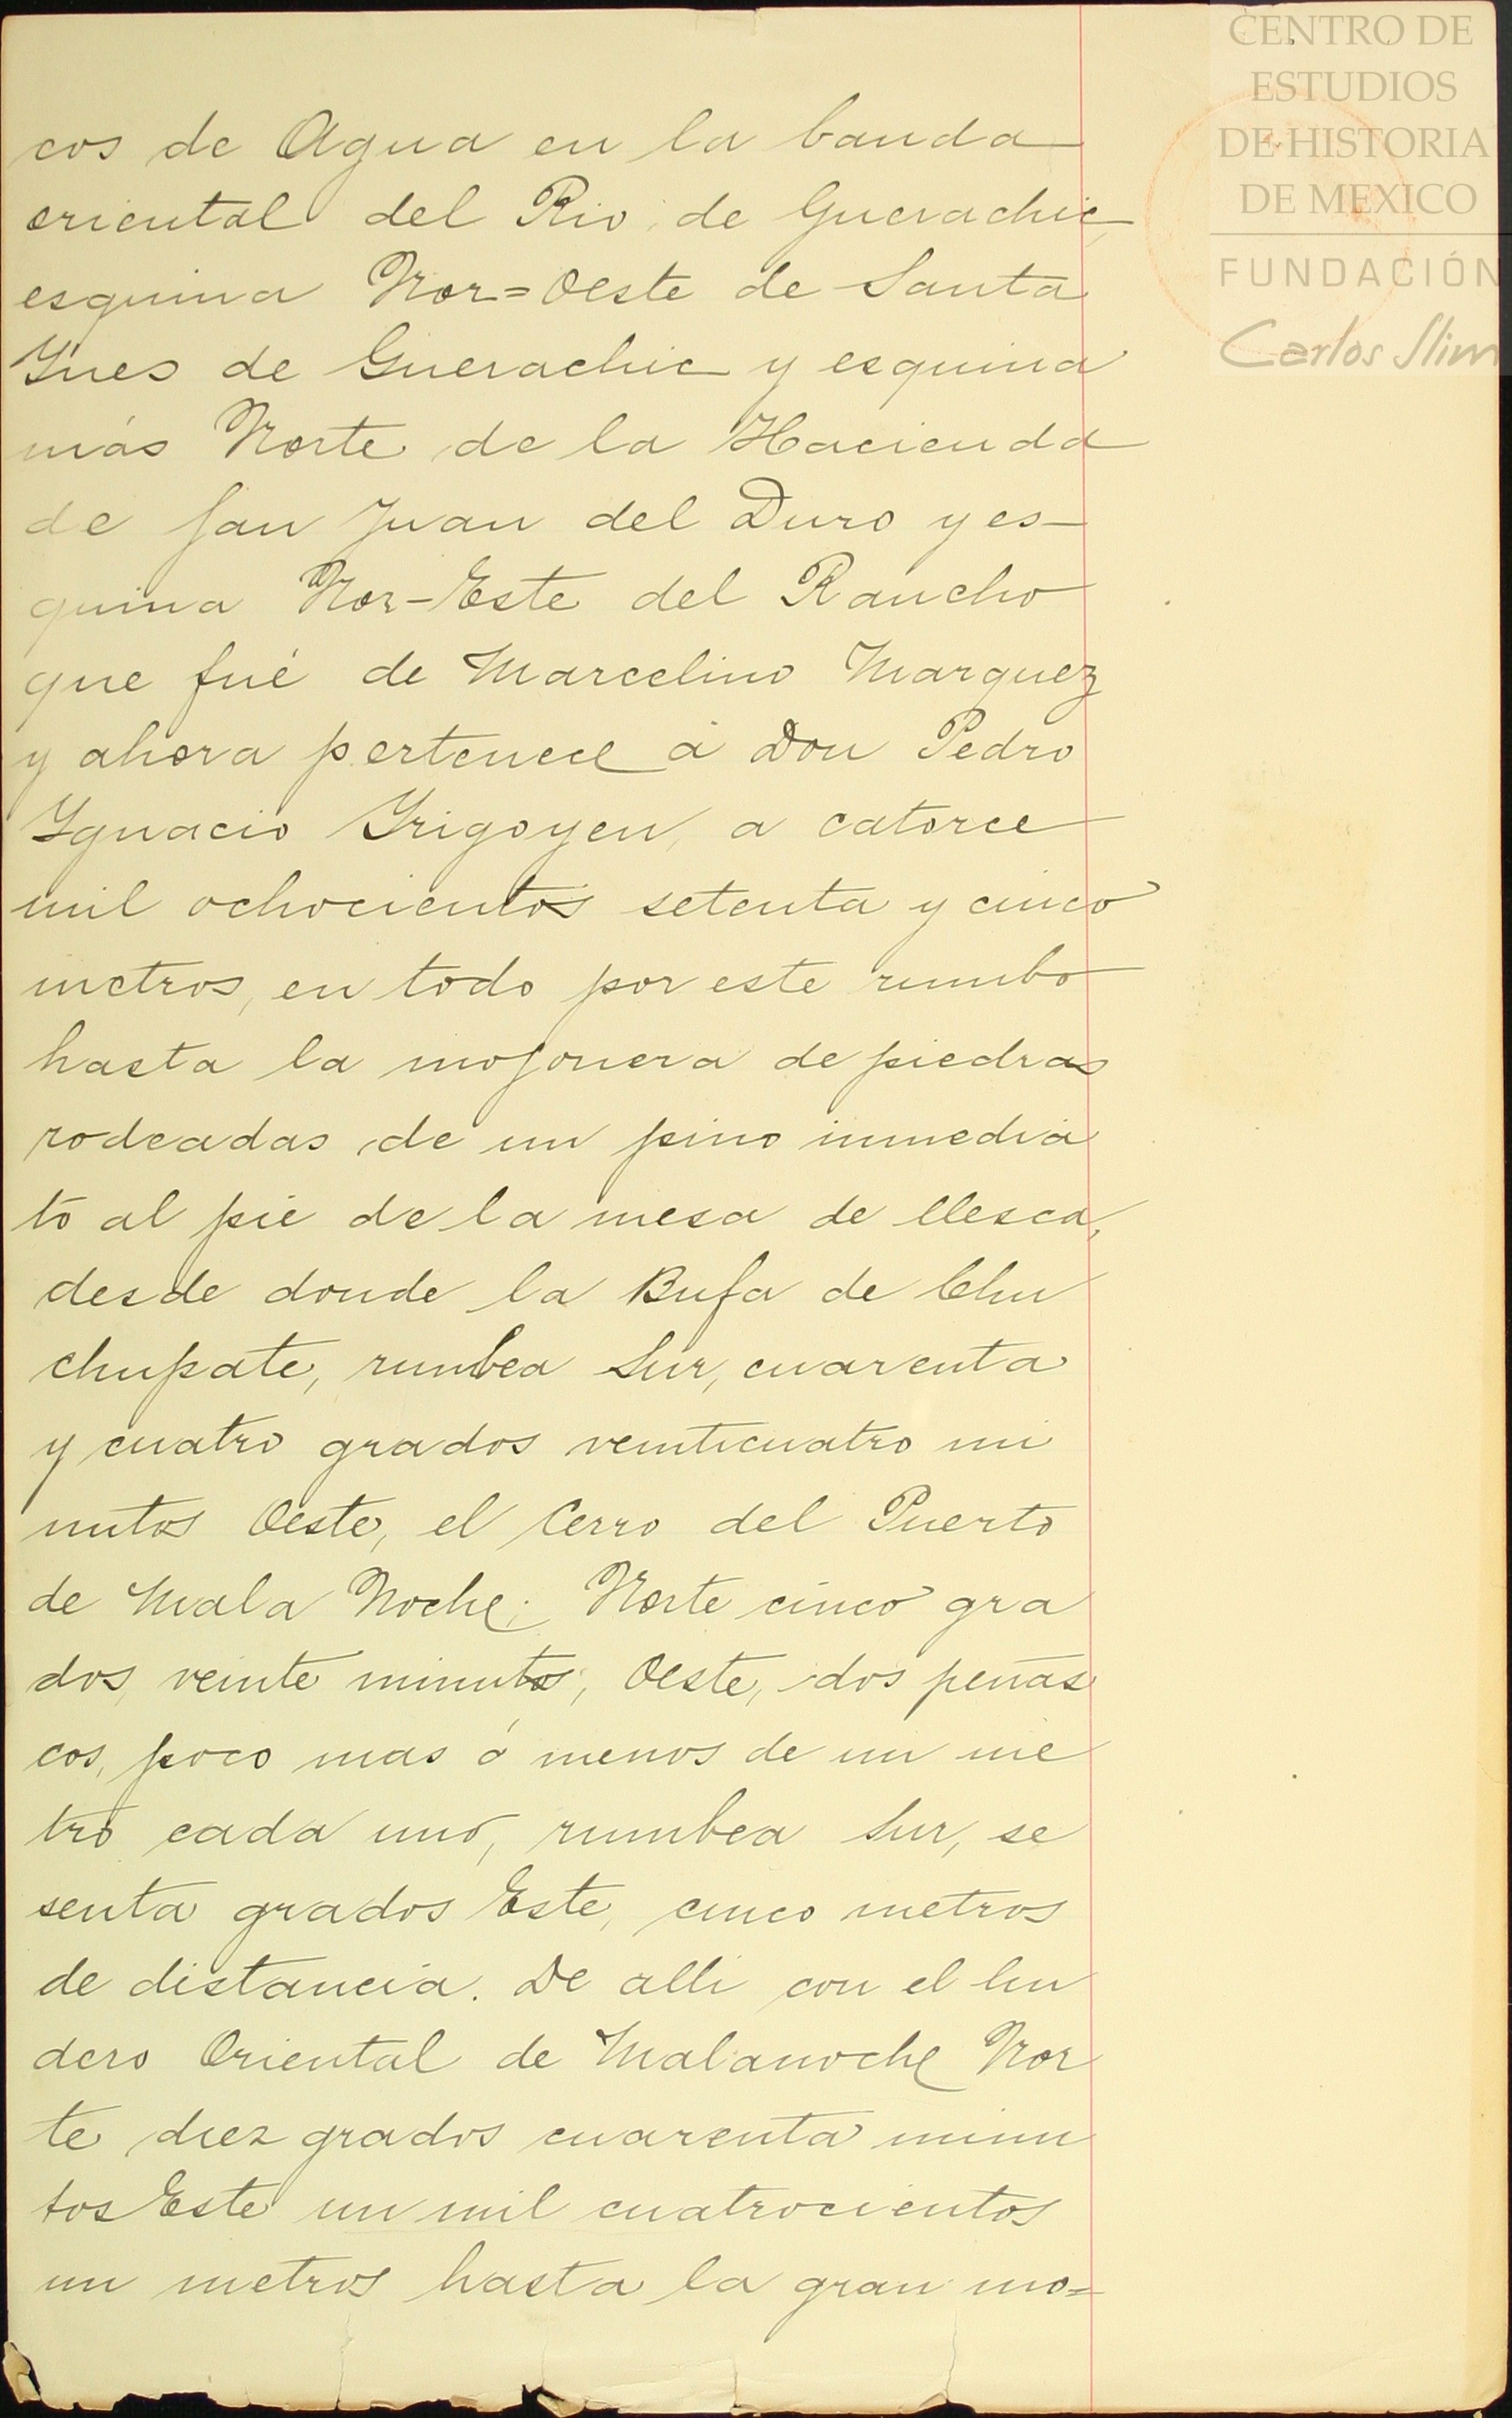 CENTRO DE
ESTUDIOS
DE HISTORIA
DE MEXICO
FUNDACIÓN
Carlos Slim
cos de Agua en la banda
oriental del Rio de Guerachic,
esquina Nor=Oeste de Santa
Ynes de Guerachic y esquina
más Norte de la Hacienda
de San Juan del Duro y es-
quina Nor-Este del Rancho
que fué de Marcelino Marquez
y ahora pertenece á Don Pedro
Ygnacio Yrigoyen, a catorce
mil ochocientos setenta y cinco
metros, en todo por este rumbo
hasta la mojonera de piedras
rodeadas de un pino inmedia
to al pié de la mesa de llesca,
desde donde la Bufa de Chu
chupate, rumbea Sur, cuarenta
y cuatro grados veinticuatro mi
nutos Oeste, el Cerro del Puerto
de Mala Noche; Norte cinco gra
dos veinte minutos, Oeste, dos peñas
cos, poco mas ó menos de un me
tro cada uno, rumbea Sur, se
senta grados Este, cinco metros
de distancia. De alli con el lin
dero Oriental de Malanoche Nor
te diez grados cuarenta minu
tos Este un mil cuatrocientos
un metros hasta la gran mo=